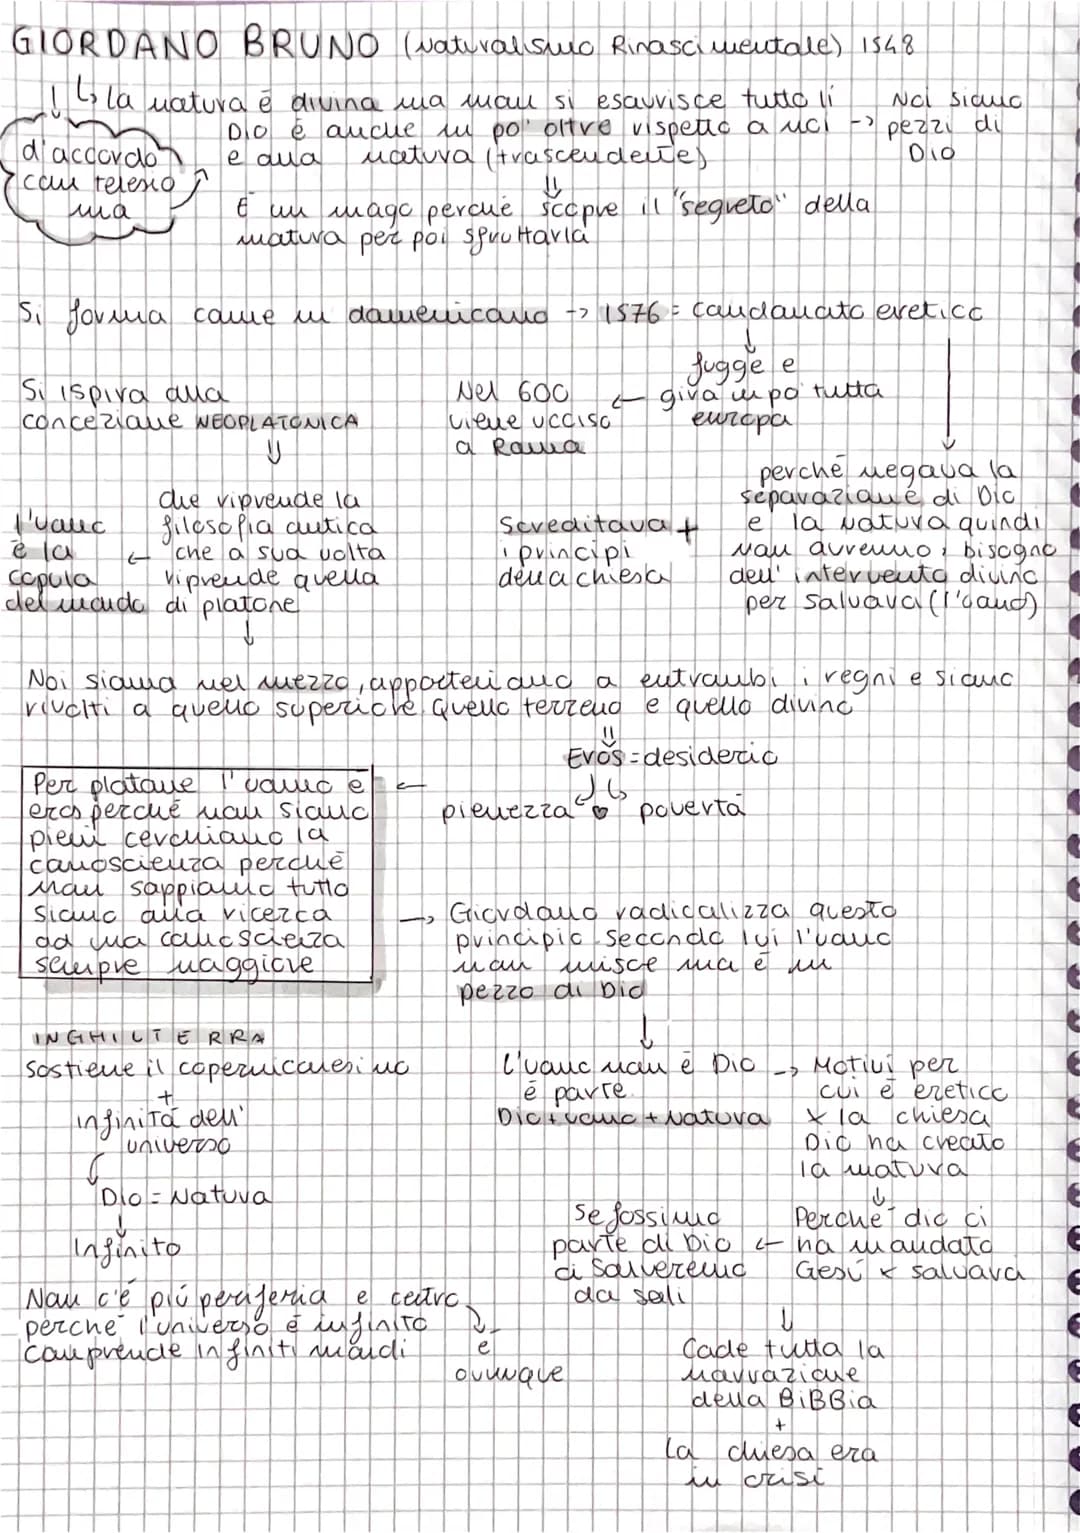 GIORDANO BRUNO (Naturalismo Rinascimentale) 1548
↳ la natura è divina ma non si esaurisce tutto lì
Dio è anche un po' oltre rispetto a noi -> 
e alla natura (trascendente)
Noi siamo
pezzi di
Dio
d'accordo
con telesio
ma
È un mago perché scopre il "segreto" della
natura per poi sfruttarla
Si forma come un domenicano -> 1576 = condannato eretico
fugge e
gira un po' tutta
europa
Nel 600
viene ucciso
a Roma
Si ispira alla
concezione NEOPLATONICA
che riprende la
filosofia antica
che a sua volta
riprende quella
di platone
l'uomo
è la
copula
del mondo
perché negava la
separazione di Dio
e la natura quindi
non avremmo bisogno
dell'intervento divino
per salvarci (l'uomo)
+
Screditava
i principi
della chiesa
Noi siamo nel mezzo, apparteniamo a entrambi i regni e siamo
rivolti a quello superiore. Quello terreno e quello divino
Eros = desiderio
pienezza povertà
Per platone l'uomo è
eros perché non siamo
pieni cerchiamo la
conoscienza perché
non sappiamo tutto
siamo alla ricerca
ad una conoscienza
sempre maggiore
-> Giordano radicalizza questo
principio. Secondo lui l'uomo
non unisce ma è un
pezzo di Dio
INGHILTERRA
Sostiene il copernicanesimo
+
infinità dell'
universo
Dio = Natura
Infinito
Non c'è più periferia e centro
perché l'universo è infinito
comprende infiniti mondi
è
ovunque
L'uomo non è Dio ->
è parte.
Dio + uomo + Natura
Motivi per
cui è eretico
x la chiesa
Dio ha creato
la natura
Perché dio ci
ha mandato
Gesù x salvarci
Se fossimo
parte di Dio
ci salveremo
da soli
Cade tutta la
narrazione
della BiBBia
+
La chiesa era
in crisi